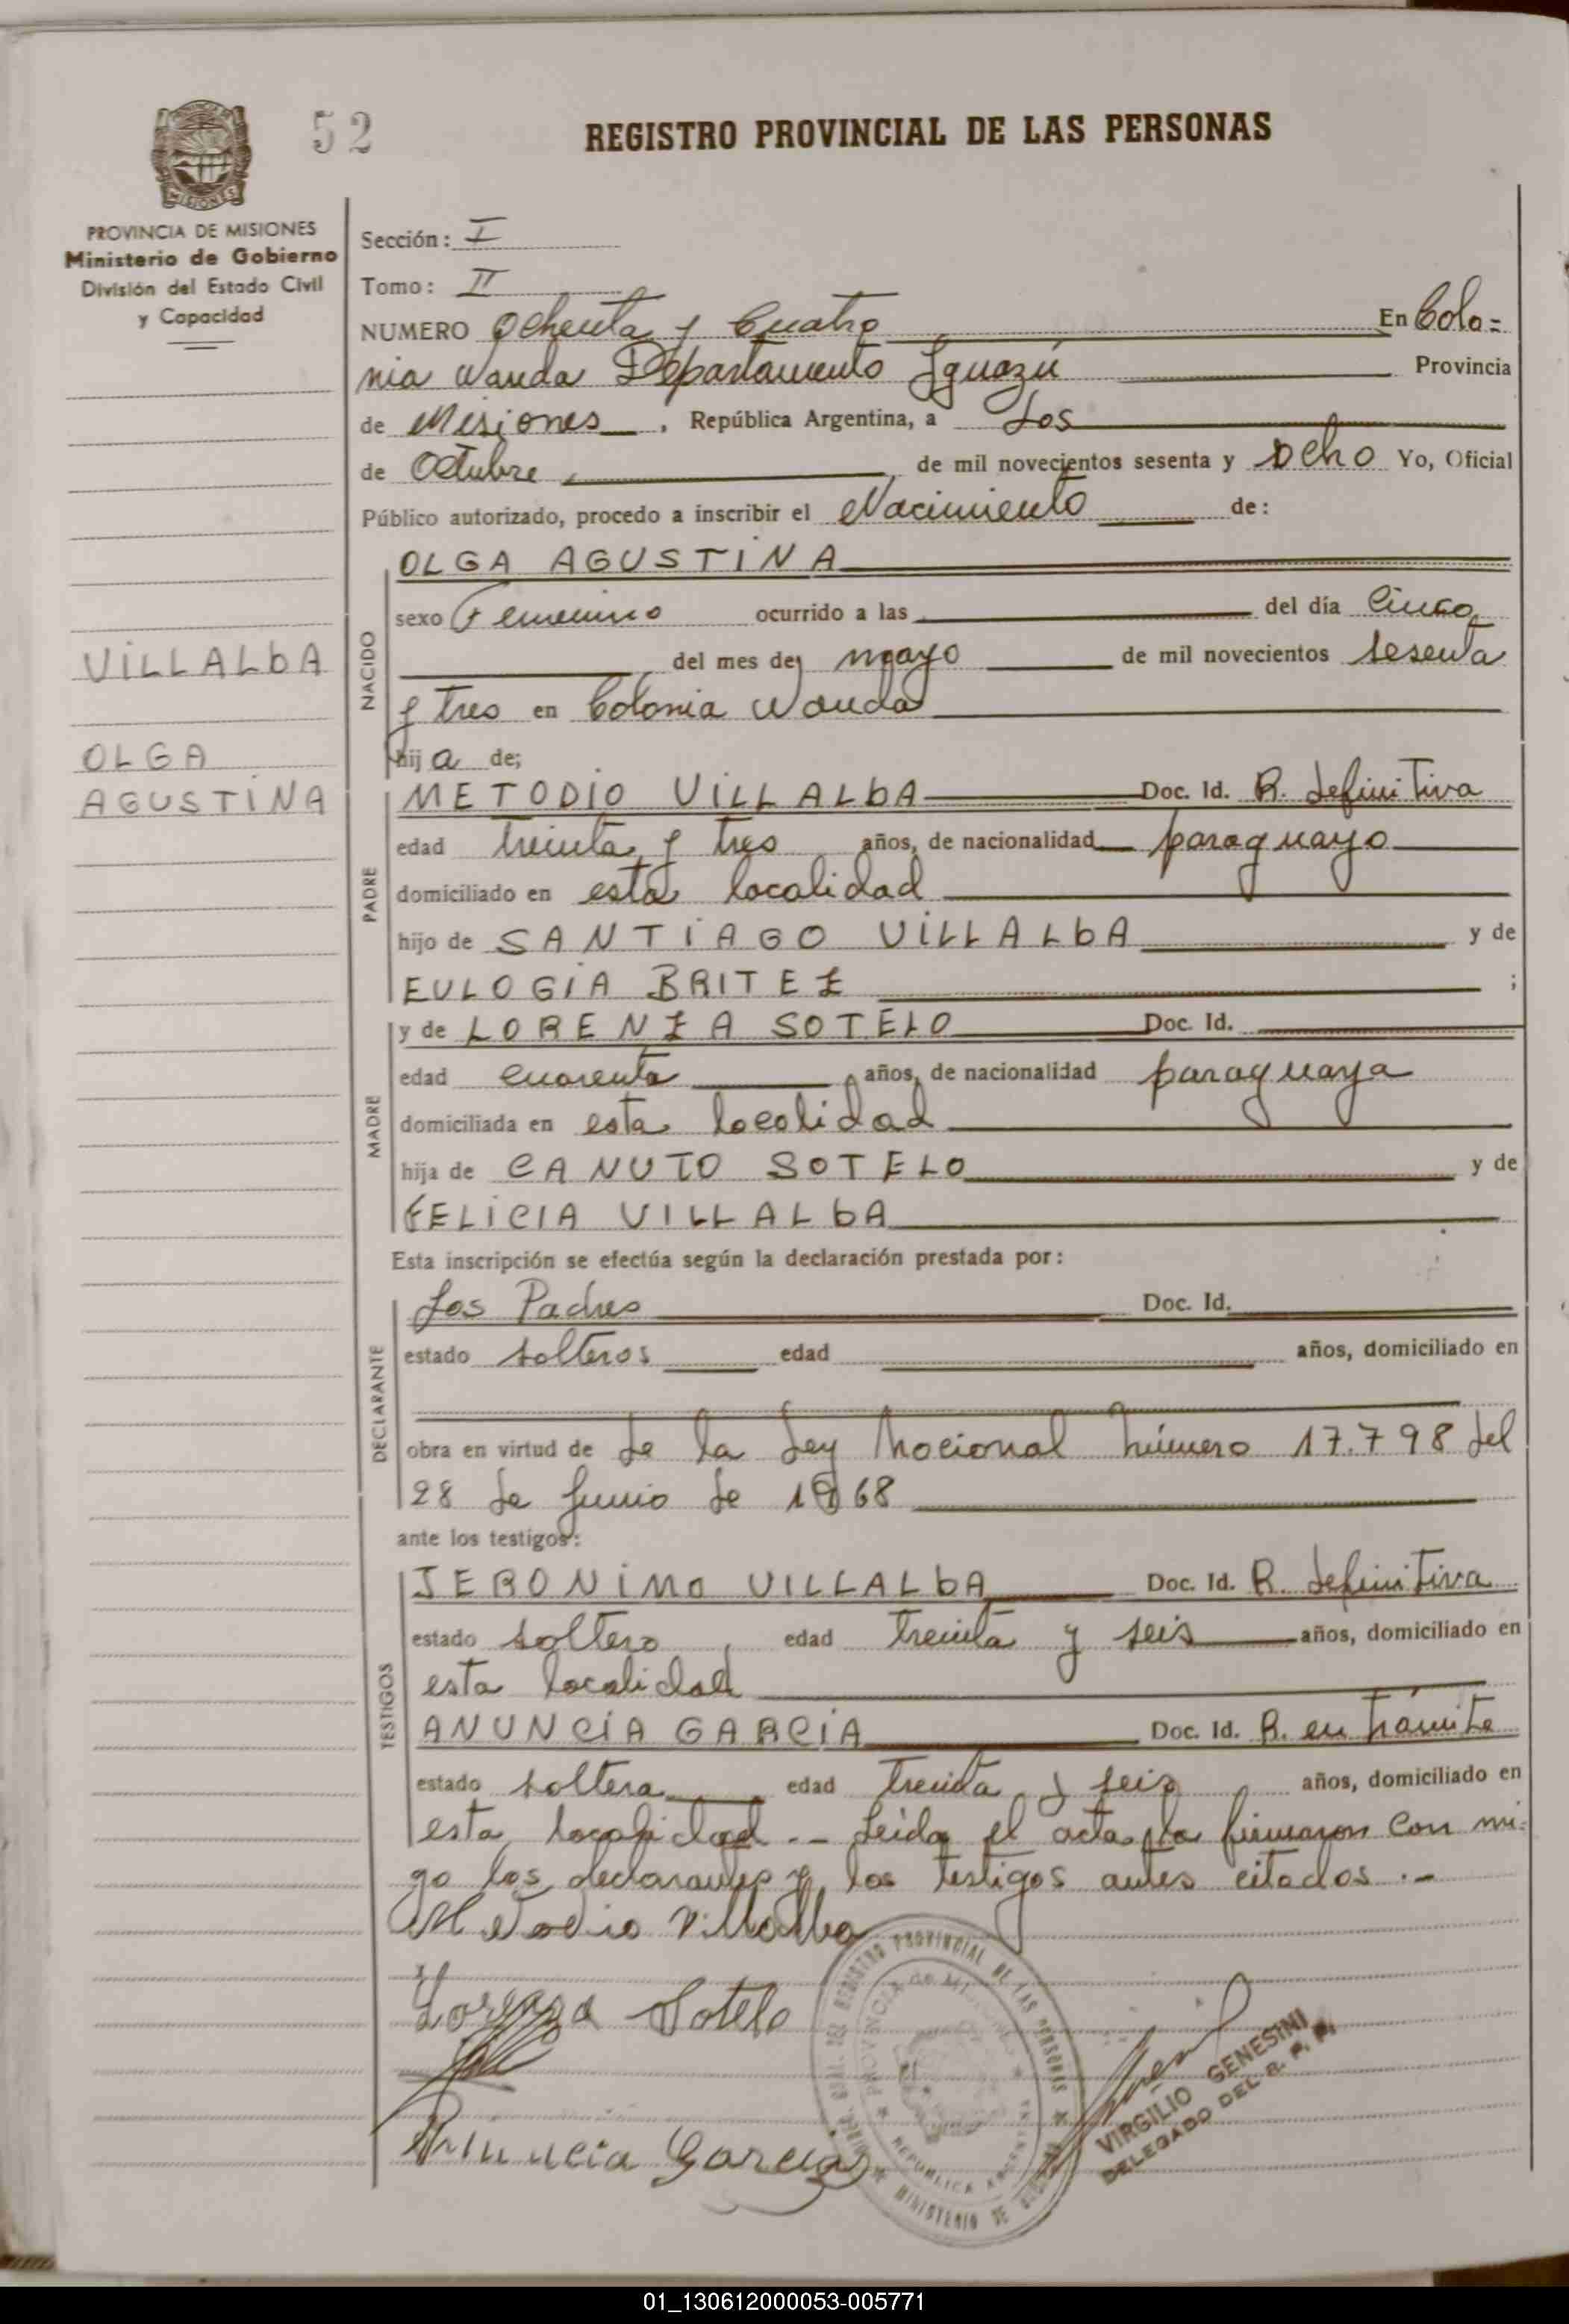 52
REGISTRO PROVINCIAL DE LAS PERSONAS
PROVINCIA DE MISIONES
Ministerio de Gobierno
División del Estado Civil
y Capacidad
Sección: I
Tomo: II
NUMERO Ochenta y Cuatro En Colo=
nia Wanda Departamento Iguazú Provincia
de Misiones, República Argentina, a dos
de Octubre, de mil novecientos sesenta y ocho Yo, Oficial
Público autorizado, procedo a inscribir el Nacimiento de:
NACIDO
OLGA AGUSTINA
sexo Femenino ocurrido a las del día Cinco
VILLALbA
del mes de mayo de mil novecientos sesenta
y tres en Colonia Wanda
OLGA
AGUSTINA
hija de;
PADRE
METODIO VILLALbA Doc. Id. R. definitiva
edad treinta y tres años, de nacionalidad paraguayo
domiciliado en esta localidad
hijo de SANTIAGO VILLALbA y de
EULOGIA BRITEZ ;
MADRE
y de LORENZA SOTELO Doc. Id.
edad cuarenta años, de nacionalidad paraguaya
domiciliada en esta localidad
hija de CANUTO SOTELO y de
FELICIA VILLALbA
Esta inscripción se efectúa según la declaración prestada por:
DECLARANTE
Los Padres Doc. Id.
estado solteros edad años, domiciliado en
obra en virtud de de la Ley Nacional número 17.798 del
28 de Junio de 1968
ante los testigos:
TESTIGOS
JERONIMO VILLALbA Doc. Id. R. definitiva
estado soltero, edad treinta y seis años, domiciliado en
esta localidad
ANUNCIA GARCIA Doc. Id. R. en trámite
estado soltera edad treinta y seis años, domiciliado en
esta localidad.- Leida el acta, la firmaron con mi=
go los declarantes y los testigos antes citados.-
Metodio Villalba
Lorenza Sotelo
Anuncia Garcia
REGISTRO PROVINCIAL DE LAS PERSONAS
PROVINCIA DE MISIONES
REPUBLICA ARGENTINA
MINISTERIO DE GOBIERNO
VIRGILIO GENESINI
DELEGADO DEL R. P. P.
01_130612000053-005771